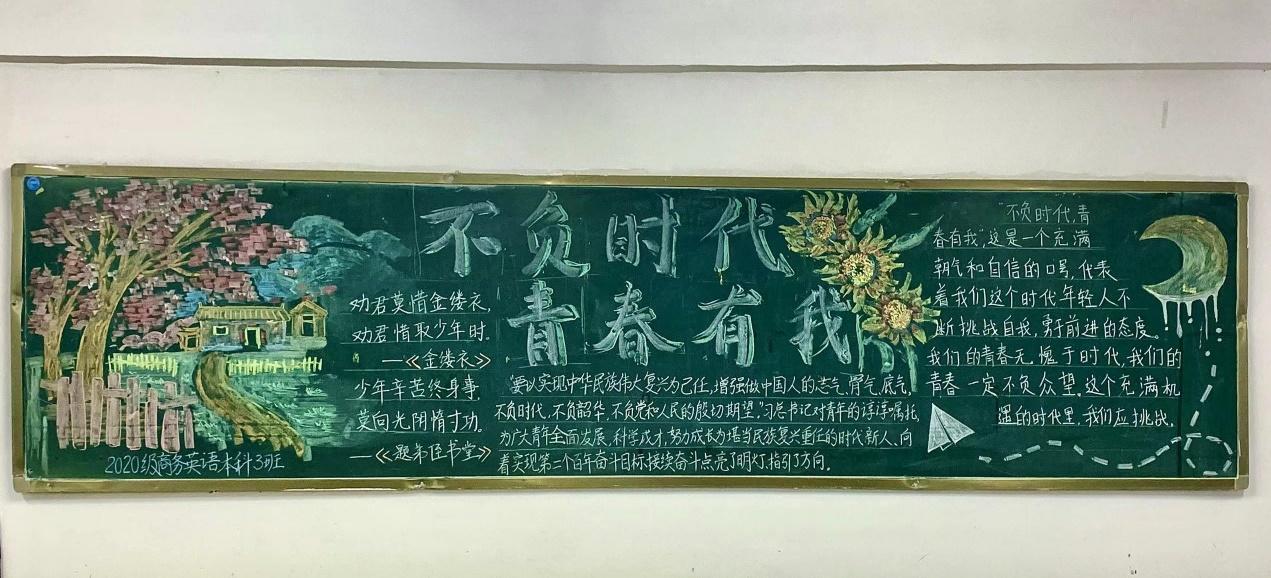 不负时代
青春有我
劝君莫惜金缕衣，
劝君惜取少年时。
——《金缕衣》
少年辛苦终身事，
莫向光阴惰寸功。
——《题弟侄书堂》
2020级商务英语本科3班
“要以实现中华民族伟大复兴为己任，增强做中国人的志气、骨气、底气，
不负时代，不负韶华，不负党和人民的殷切期望。”习总书记对青年的谆谆嘱托，
为广大青年全面发展、科学成才，努力成长为堪当民族复兴重任的时代新人、向
着实现第二个百年奋斗目标接续奋斗点亮了明灯，指引了方向。
“不负时代，青
春有我”，这是一个充满
朝气和自信的口号，代表
着我们这个时代年轻人不
断挑战自我，勇于前进的态度。
我们的青春无愧于时代，我们的
青春一定不负众望。这个充满机
遇的时代里，我们应挑战，